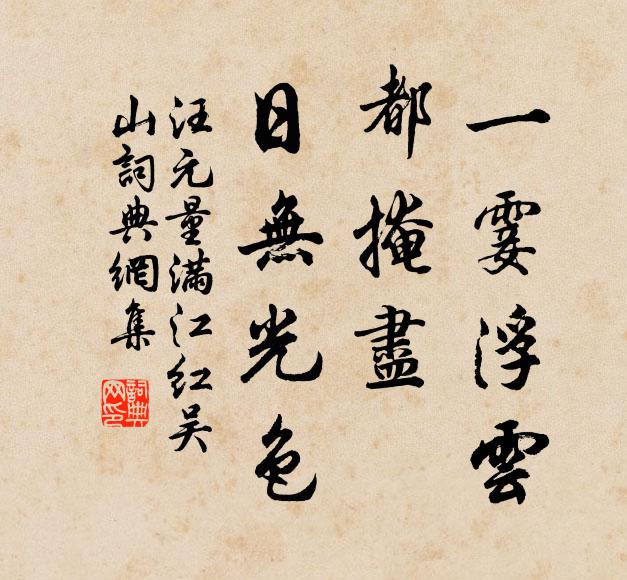 一霎浮雲
都掩盡
日無光色
汪元量滿江红吴
山詞典網集
詞典
网印